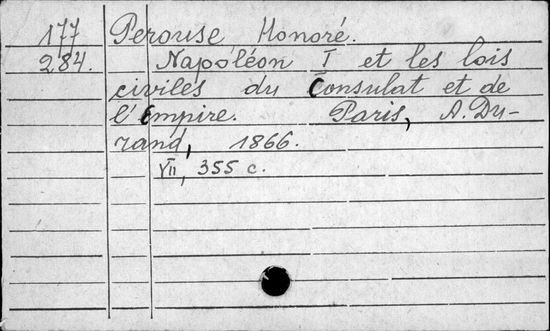 177 Perouse Honoré.
284. Napoléon I et les lois
civiles du Consulat et de
l'Empire. Paris, A. Du-
rand, 1866.
VII, 355 c.